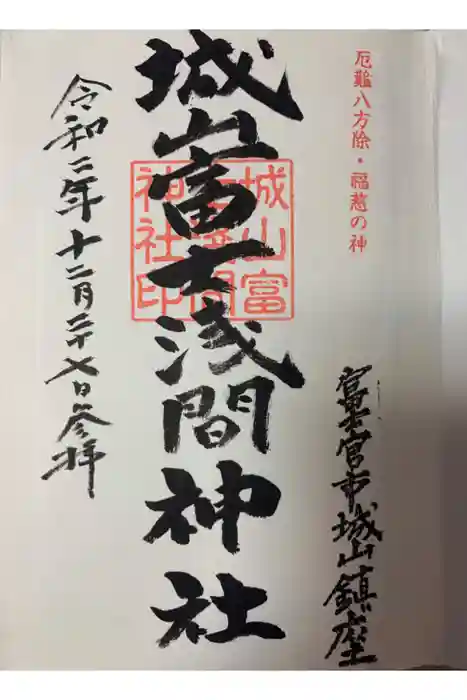 厄難八方除・福惹の神
富士宮市城山鎮座
城山富士浅間神社
城山富
士浅間
神社印
令和二年十二月二十七日参拝